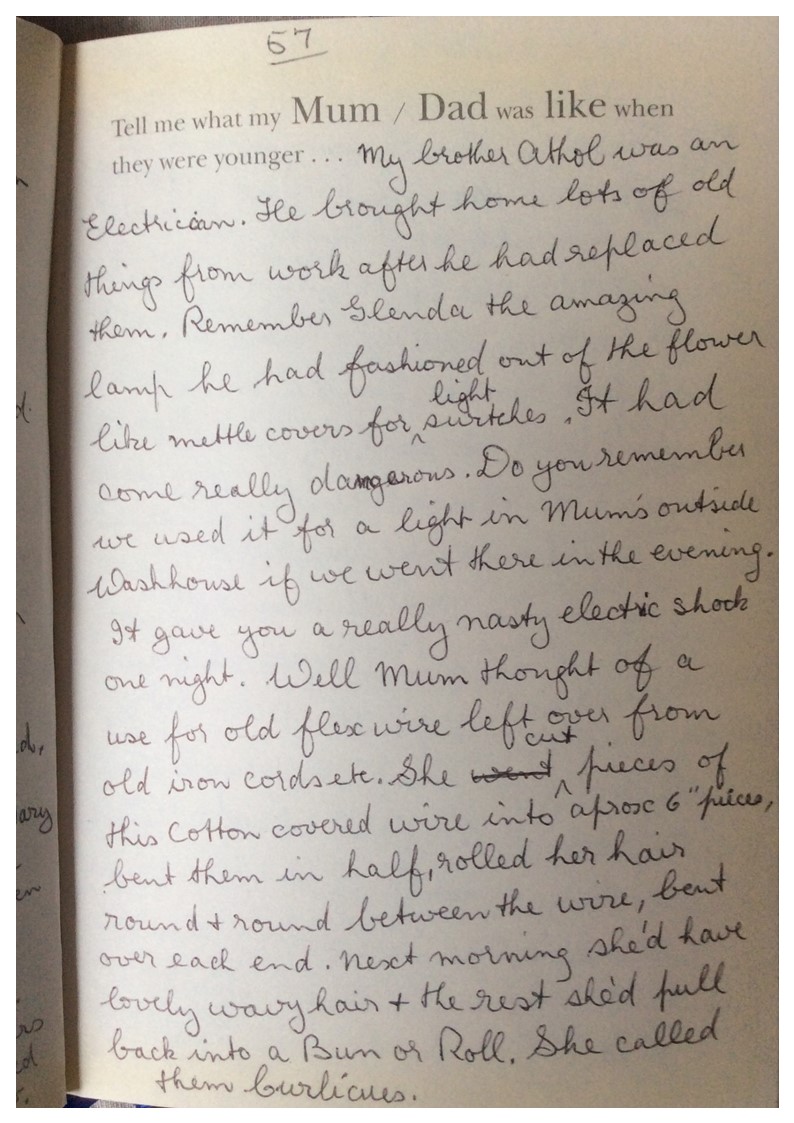 57
Tell me what my Mum / Dad was like when
they were younger . . . My brother Athol was an
Electrician. He brought home lots of old
things from work after he had replaced
them. Remember Glenda the amazing
lamp he had fashioned out of the flower
light
like mettle covers for ^ swtches. It had
come really dangerous. Do you remember
we used it for a light in Mum's outside
Washhouse if we went there in the evening.
It gave you a really nasty electric shock
one night. Well Mum thought of a
use for old flex wire left over from
cut
old iron cords etc. She went ^ pieces of
this Cotton covered wire into aprox 6" pieces,
bent them in half, rolled her hair
round + round between the wire, bent
over each end. Next morning she'd have
lovely wavy hair + the rest she'd pull
back into a Bun or Roll. She called
them burlicues.